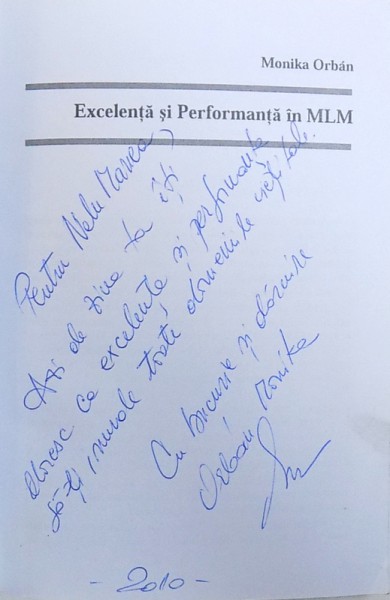 Monika Orbán
Excelență și Performanță în MLM
Pentru Nelu Manea,
Azi de ziua ta îți
doresc ca excelența și performanța
să-ți inunde toate domeniile vieții tale.
Cu bucurie și dăruire
Orbán Monika
- 2010 -